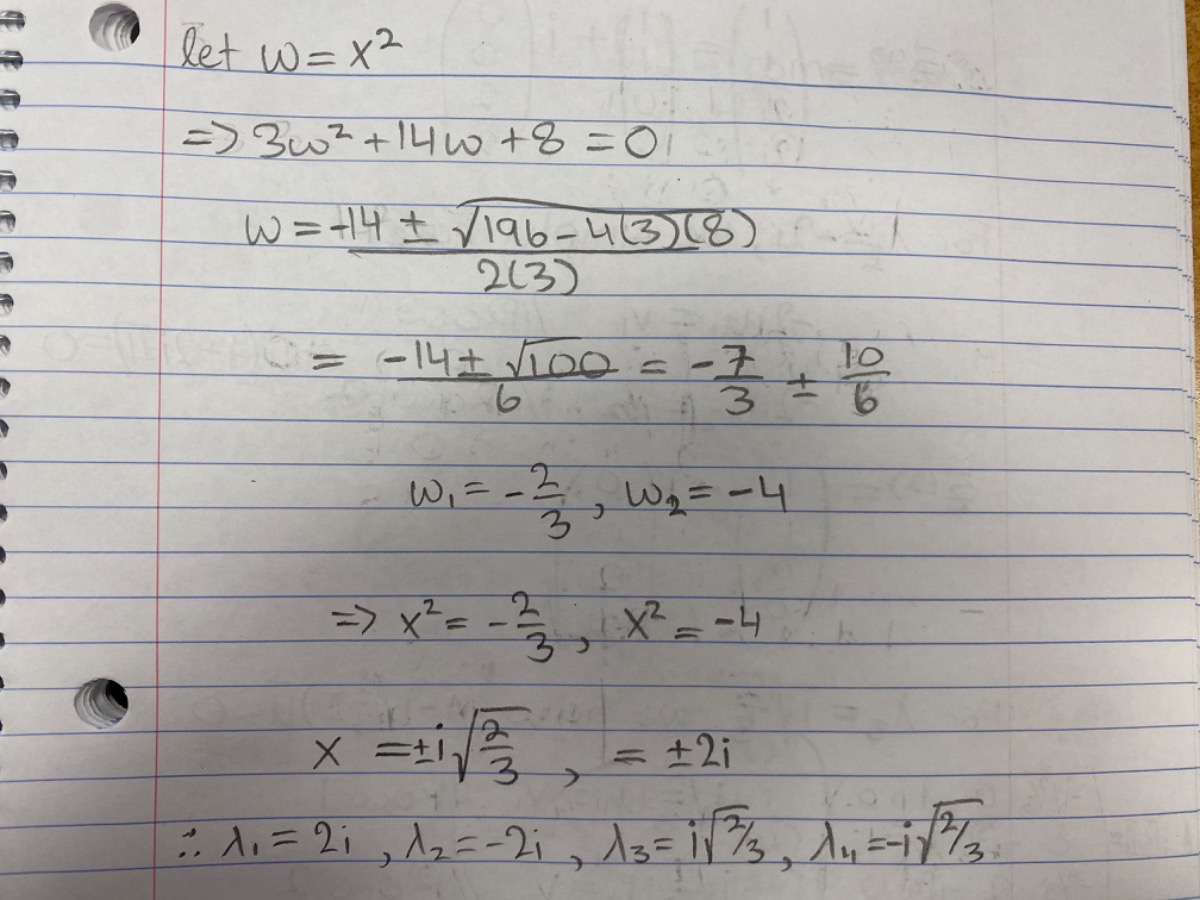 let w = x²
=> 3w² + 14w + 8 = 0
w = -14 ± √196 - 4(3)(8)
2(3)
= -14 ± √100 / 6 = -7/3 ± 10/6
w₁ = -2/3 , w₂ = -4
=> x² = -2/3 , x² = -4
x = ±i√2/3 , = ±2i
∴ λ₁ = 2i , λ₂ = -2i , λ₃ = i√2/3 , λ₄ = -i√2/3